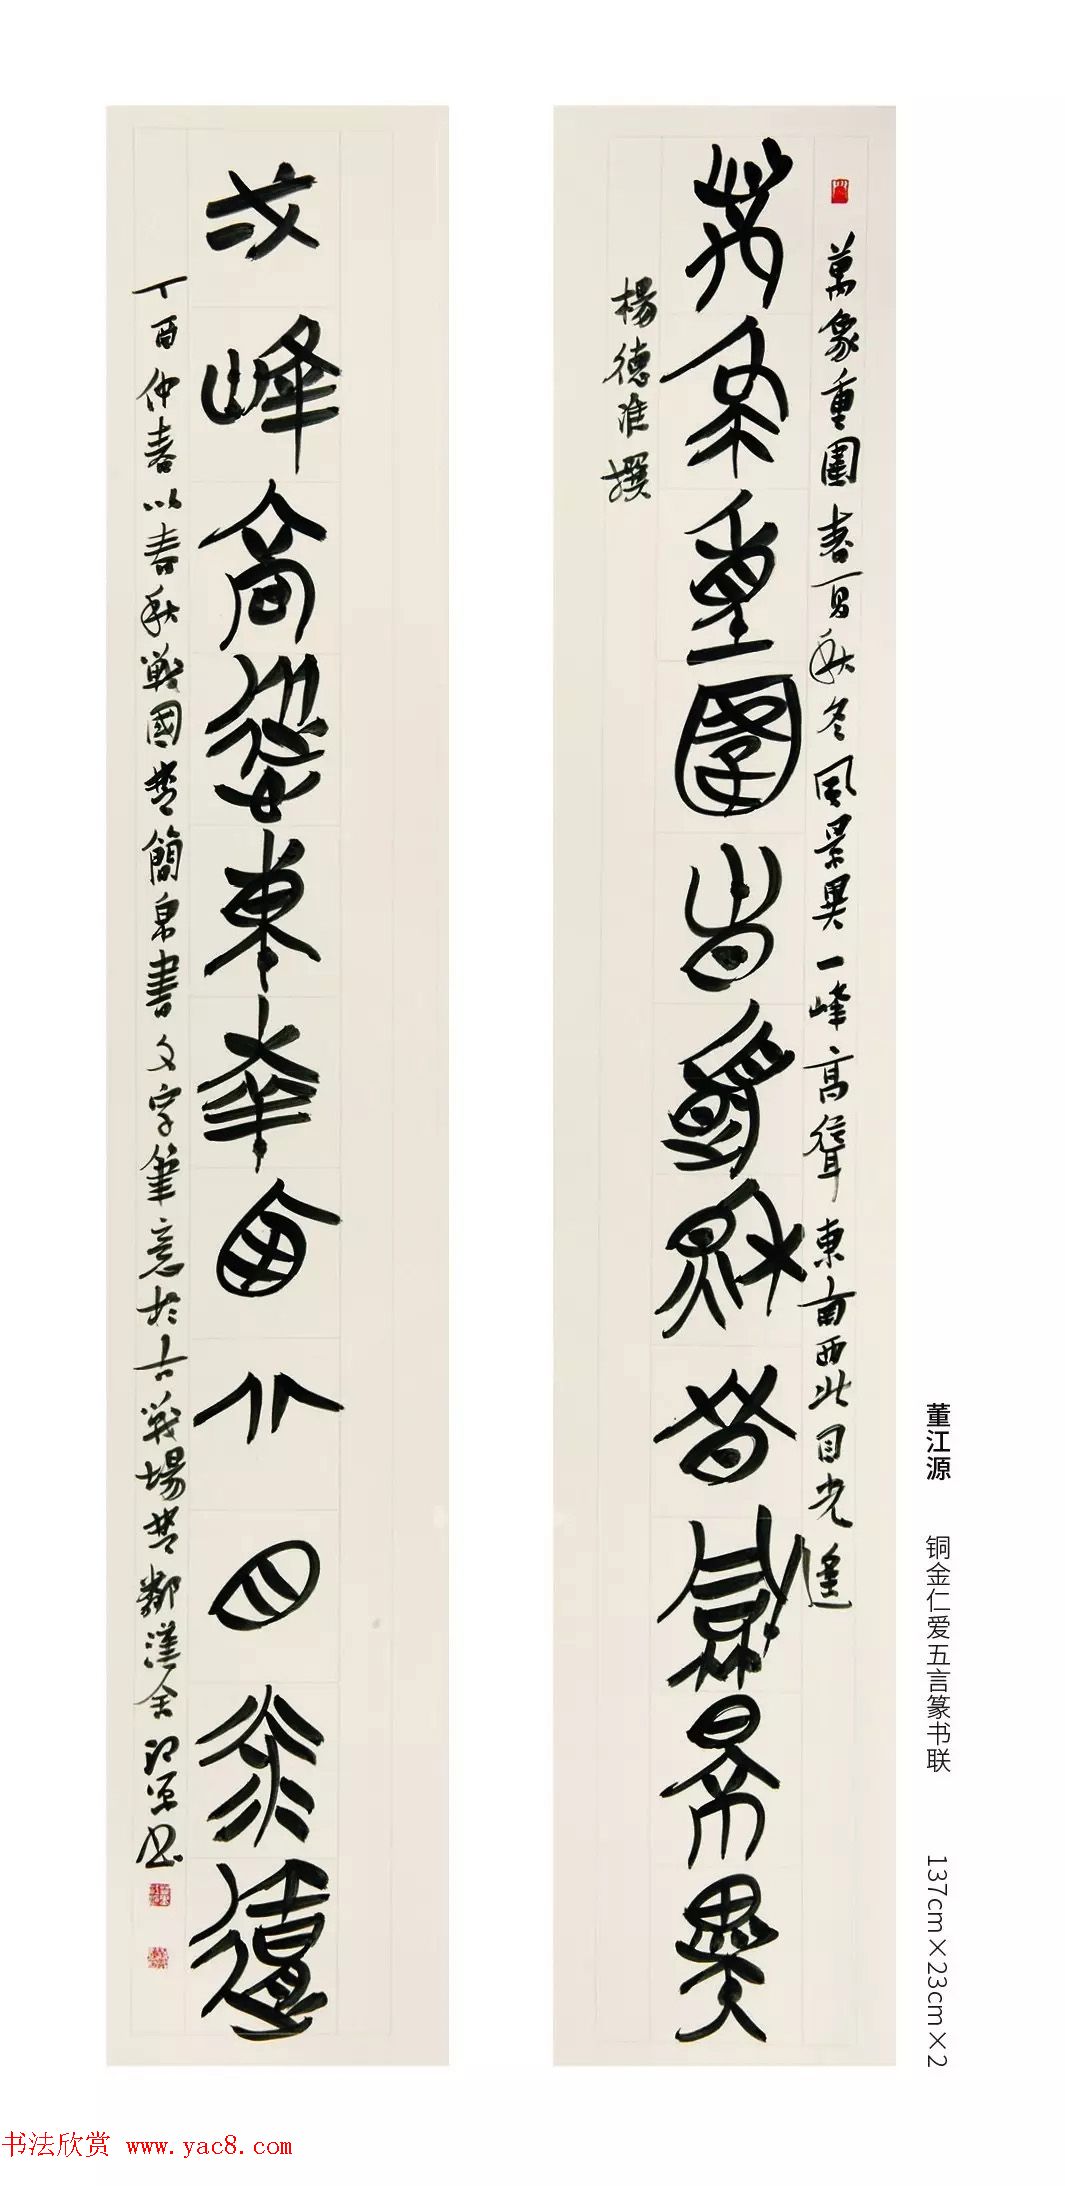 萬象重圍春夏秋冬風景異一峰高聳東南西北目光逢
萬象重圍春夏秋冬風景異
楊德淮撰
弌峰高聳東華南北目光逢
丁酉仲春以春秋戰國楚簡帛書文字筆意於古戰場楚鄰漢舍江源書
董江源 铜金仁爱五言篆书联 137cm×23cm×2
书法欣赏 www.yac8.com